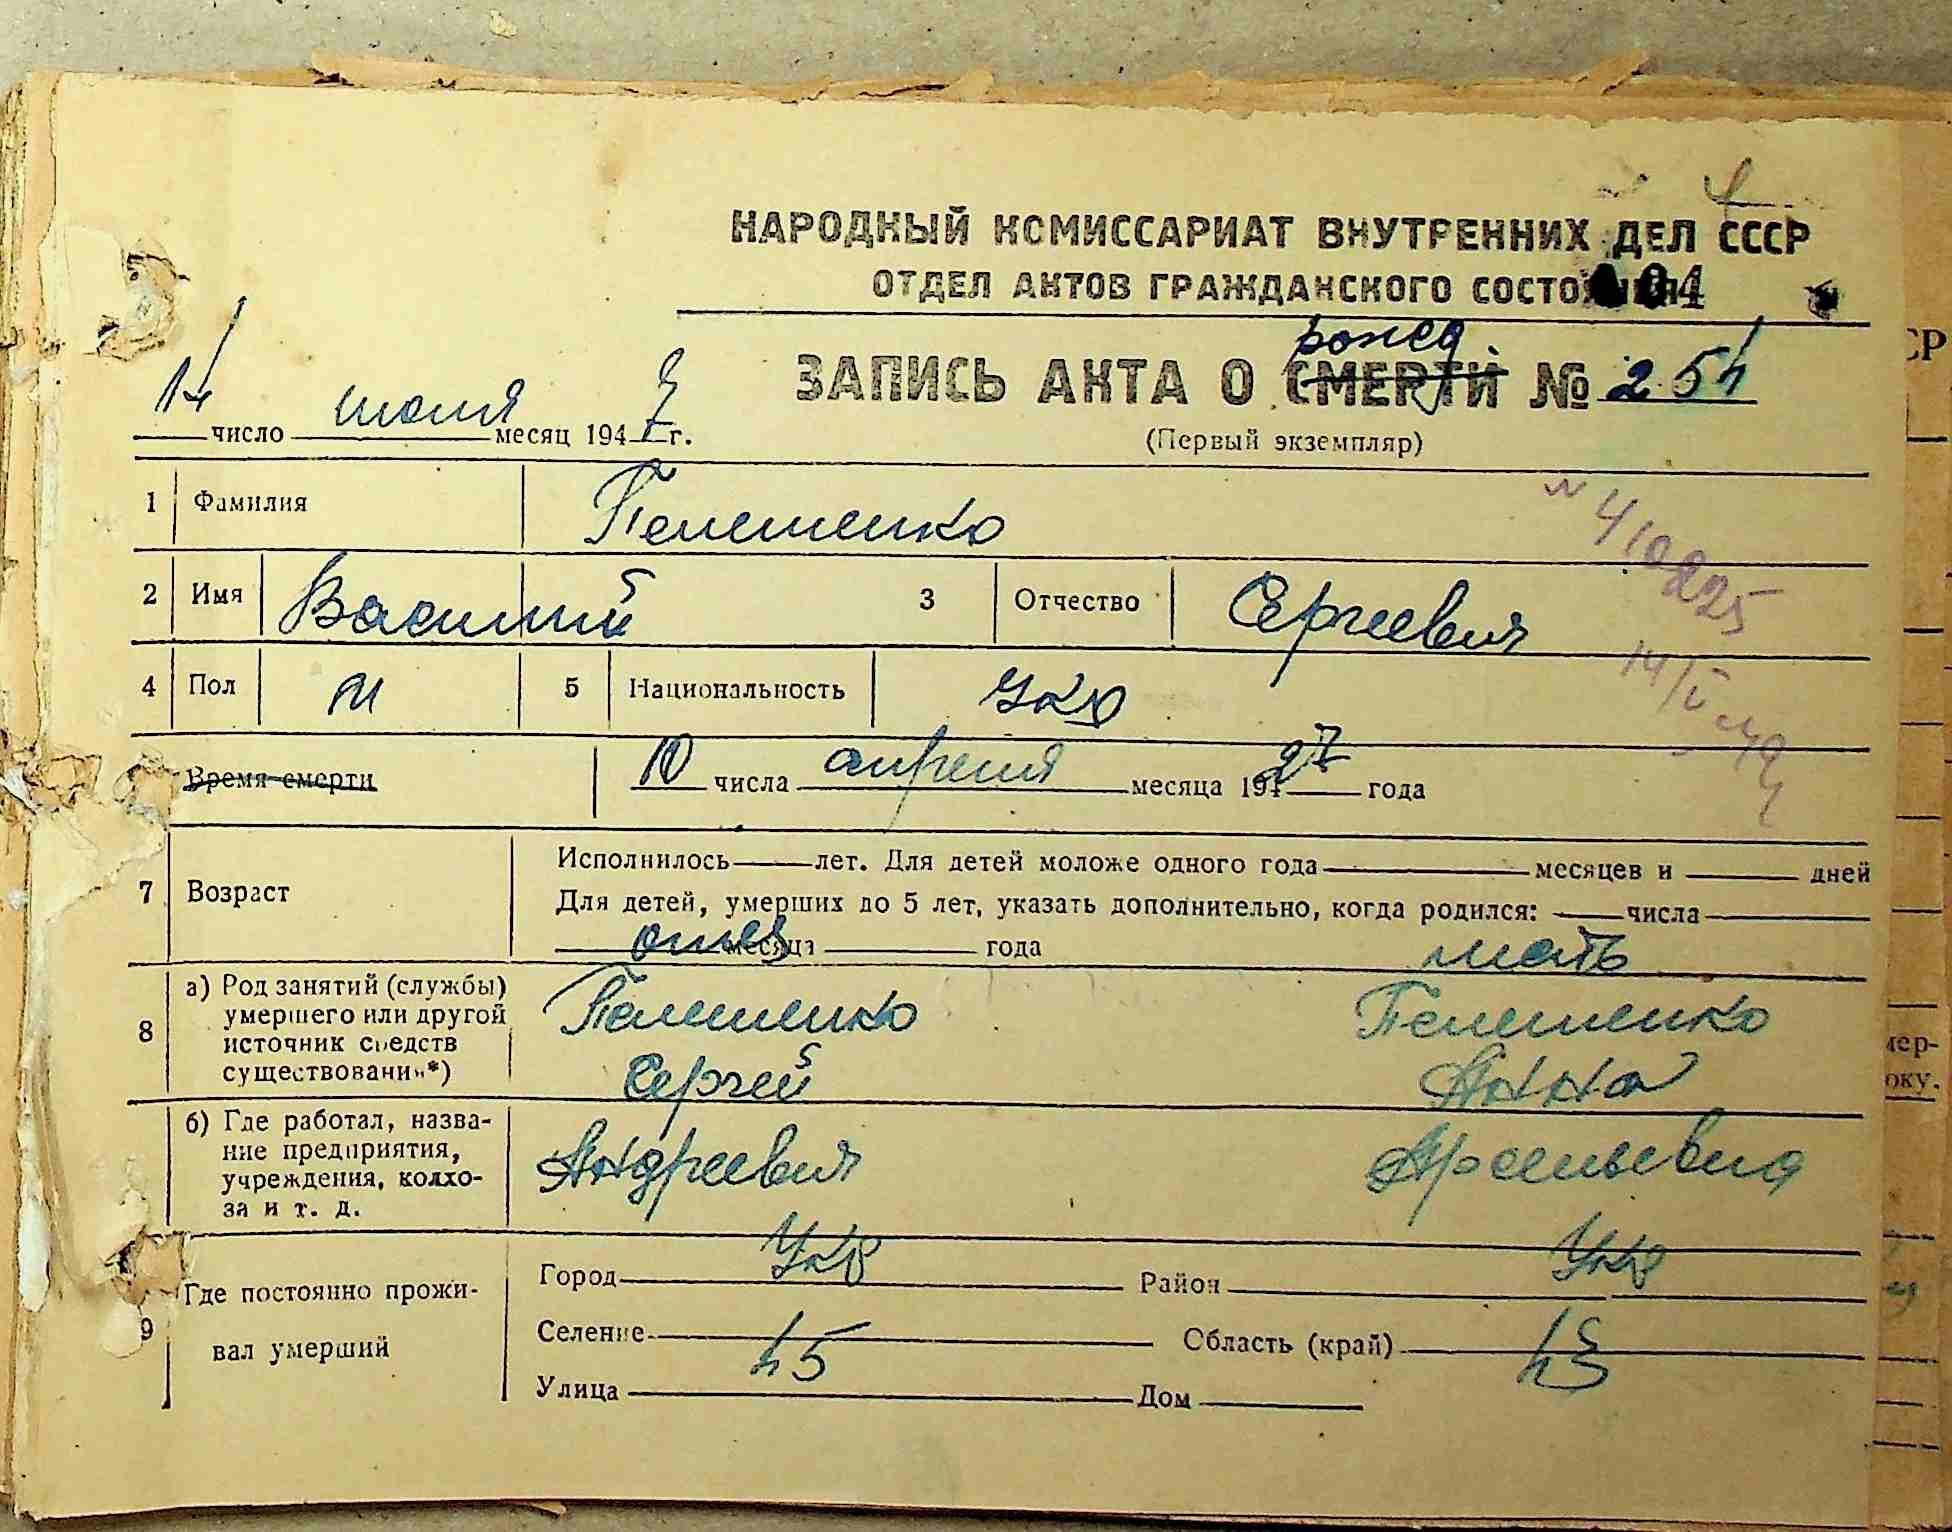 НАРОДНЫЙ КОМИССАРИАТ ВНУТРЕННИХ ДЕЛ СССР
ОТДЕЛ АКТОВ ГРАЖДАНСКОГО СОСТОЯНИЯ
рожд.
ЗАПИСЬ АКТА О СМЕРТИ № 254
14 число июля месяц 1947 г.
(Первый экземпляр)
1 Фамилия Пелешенко
№ 410225
2 Имя Василий 3 Отчество Сергеевич
4 Пол м 5 Национальность укр
Время смерти 10 числа апреля месяца 1927 года
7 Возраст Исполнилось лет. Для детей моложе одного года месяцев и дней
Для детей, умерших до 5 лет, указать дополнительно, когда родился: числа
месяца года
отец мать
8 а) Род занятий (службы) умершего или другой источник средств существования*)
Пелешенко Пелешенко
Сергей Анна
б) Где работал, назва-
ние предприятия,
учреждения, колхо-
за и т. д.
Андреевич Арсеньевна
укр укр
9 Где постоянно прожи-
вал умерший
Город Район
Селение Область (край)
45 43
Улица Дом